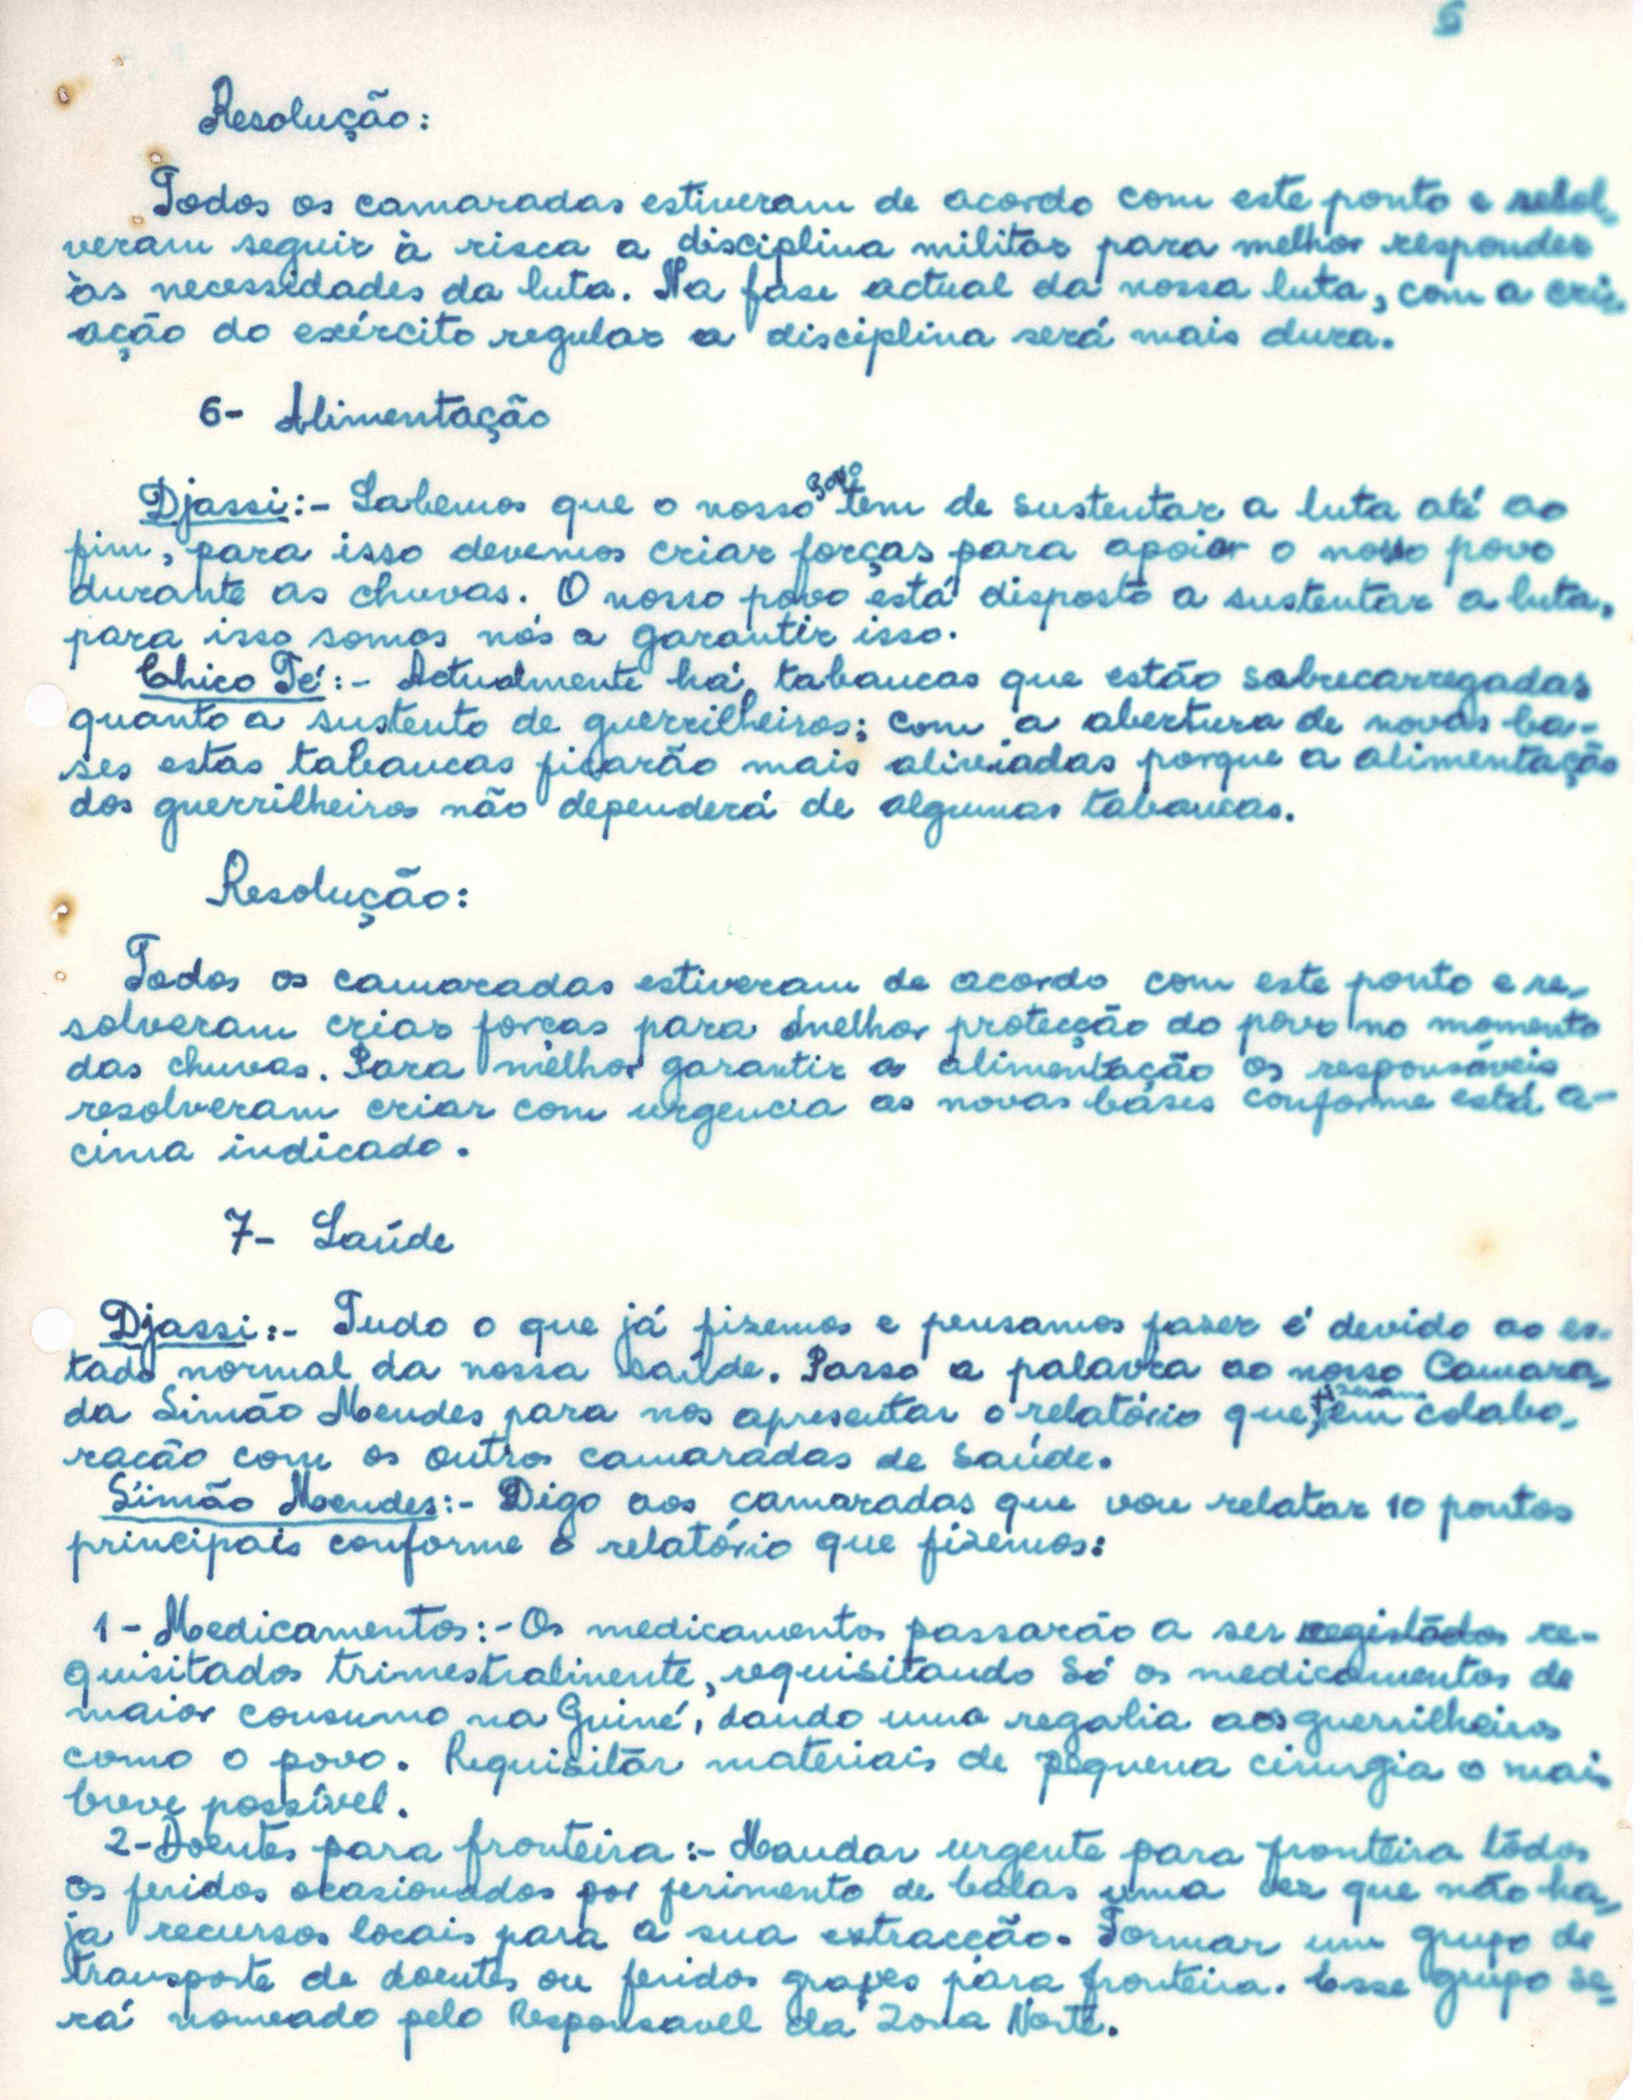 5
Resolução:
Todos os camaradas estiveram de acordo com este ponto e resol-
veram seguir à risca a disciplina militar para melhor responder
às necessidades da luta. Na fase actual da nossa luta, com a cri-
ação do exército regular a disciplina será mais dura.
6- Alimentação
Djassi:- Sabemos que o nosso povo tem de sustentar a luta até ao
fim, para isso devemos criar forças para apoiar o nosso povo
durante as chuvas. O nosso povo está disposto a sustentar a luta,
para isso somos nós a garantir isso.
Chico Té:- Actualmente há tabancas que estão sobrecarregadas
quanto a sustento de guerrilheiros; com a abertura de novas ba-
ses estas tabancas ficarão mais aliviadas porque a alimentação
dos guerrilheiros não dependerá de algumas tabancas.
Resolução:
Todos os camaradas estiveram de acordo com este ponto e re-
solveram criar forças para melhor protecção do povo no momento
das chuvas. Para melhor garantir a alimentação os responsáveis
resolveram criar com urgencia as novas báses conforme está a-
cima indicado.
7- Saúde
Djassi:- Tudo o que já fizemos e pensamos fazer é devido ao es-
tado normal da nossa saúde. Passo a palavra ao nosso Camara-
da Simão Mendes para nos apresentar o relatório que fizeram em colabo-
ração com os outros camaradas de saúde.
Simão Mendes:- Digo aos camaradas que vou relatar 10 pontos
principais conforme o relatório que fizemos:
1- Medicamentos:- Os medicamentos passarão a ser registádos re-
quisitados trimestralmente, requisitando só os medicamentos de
maior consumo na Guiné, dando uma regalia aos guerrilheiros
como o povo. Requisitar materiais de pequena cirurgia o mais
breve possível.
2- Doentes para fronteira:- Mandar urgente para fronteira tôdos
os feridos ocasionados por ferimento de balas uma vez que não ha-
ja recursos locais para a sua extracção. Formar um grupo de
transporte de doentes ou feridos graves para fronteira. Esse grupo se-
rá nomeado pelo Responsavel da Zona Norte.